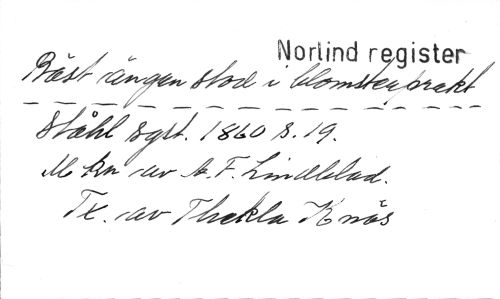 Norlind register
Bäst ängen stod i blomsterprakt
Ståhl syst. 1860 s. 19.
M kn av A. F. Lindblad.
Tx. av Thekla Knös